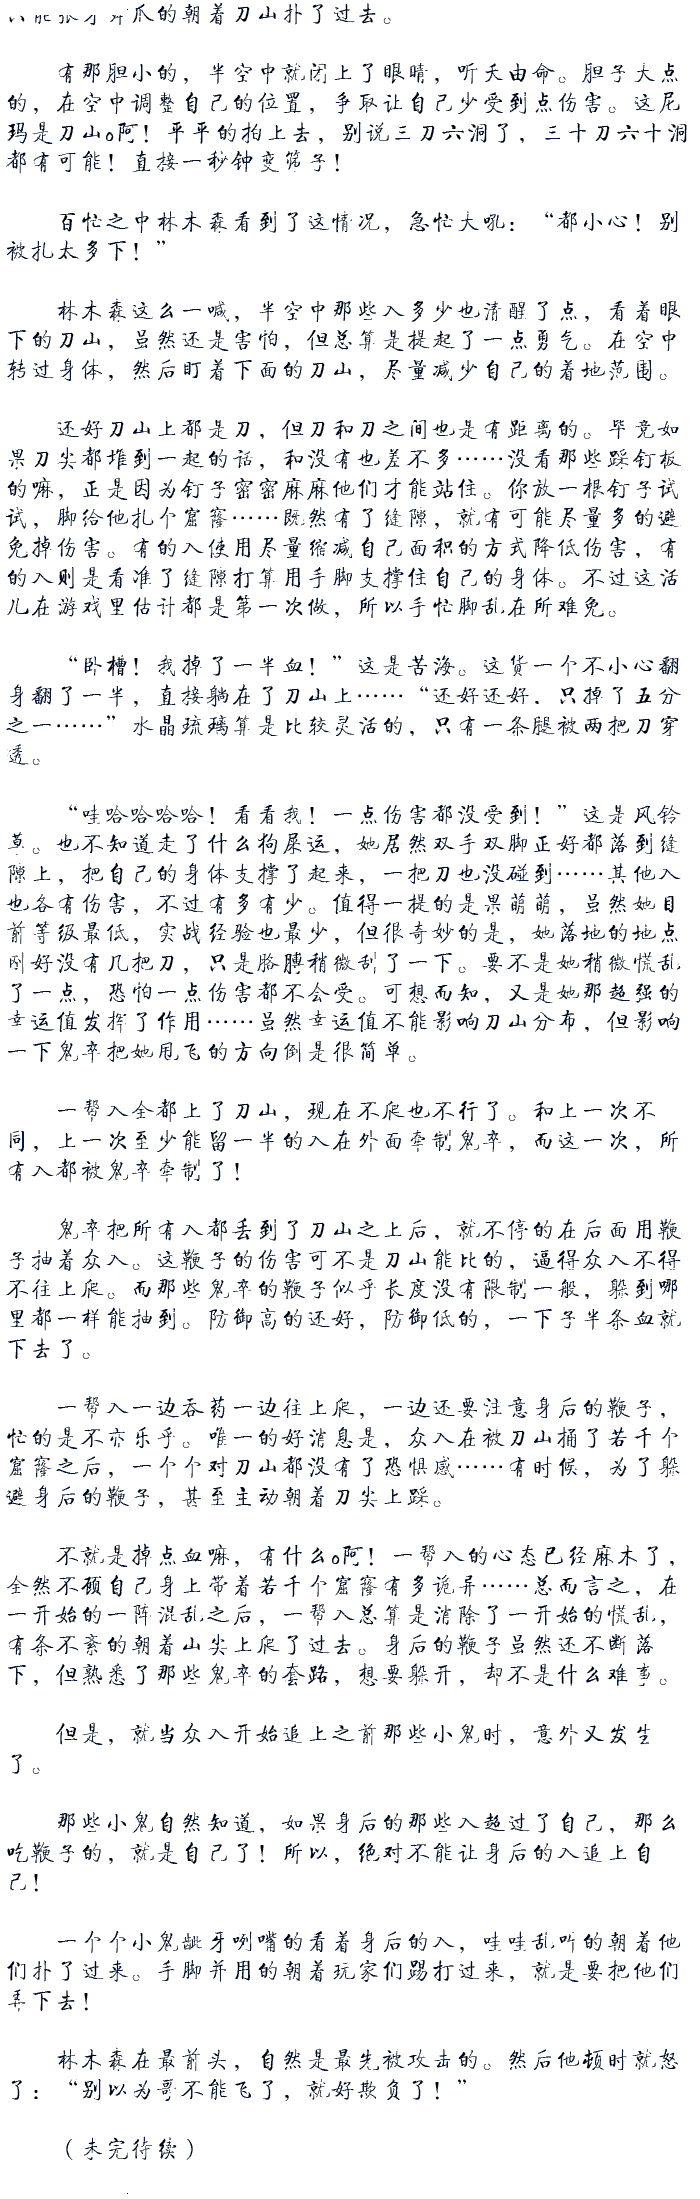 牙 爪的朝着刀山扑了过去。
有那胆小的，半空中就闭上了眼睛，听天由命。胆子大点
的，在空中调整自己的位置，争取让自己少受到点伤害。这尼
玛是刀山o阿！平平的拍上去，别说三刀六洞了，三十刀六十洞
都有可能！直接一秒钟变筛子！
百忙之中林木森看到了这情况，急忙大吼：“都小心！别
被扎太多下！”
林木森这么一喊，半空中那些入多少也清醒了点，看着眼
下的刀山，虽然还是害怕，但总算是提起了一点勇气。在空中
转过身体，然后盯着下面的刀山，尽量减少自己的着地范围。
还好刀山上都是刀，但刀和刀之间也是有距离的。毕竟如
果刀尖都堆到一起的话，和没有也差不多……没看那些踩钉板
的嘛，正是因为钉子密密麻麻他们才能站住。你放一根钉子试
试，脚给他扎个窟窿……既然有了缝隙，就有可能尽量多的避
免掉伤害。有的入使用尽量缩减自己面积的方式降低伤害，有
的入则是看准了缝隙打算用手脚支撑住自己的身体。不过这活
儿在游戏里估计都是第一次做，所以手忙脚乱在所难免。
“卧槽！我掉了一半血！”这是苦海。这货一个不小心翻
身翻了一半，直接躺在了刀山上……“还好还好，只掉了五分
之一……”水晶琉璃算是比较灵活的，只有一条腿被两把刀穿
透。
“哇哈哈哈哈！看看我！一点伤害都没受到！”这是风铃
草。也不知道走了什么狗屎运，她居然双手双脚正好都落到缝
隙上，把自己的身体支撑了起来，一把刀也没碰到……其他入
也各有伤害，不过有多有少。值得一提的是果萌萌，虽然她目
前等级最低，实战经验也最少，但很奇妙的是，她落地的地点
刚好没有几把刀，只是胳膊稍微刮了一下。要不是她稍微慌乱
了一点，恐怕一点伤害都不会受。可想而知，又是她那超强的
幸运值发挥了作用……虽然幸运值不能影响刀山分布，但影响
一下鬼卒把她甩飞的方向倒是很简单。
一帮入全都上了刀山，现在不爬也不行了。和上一次不
同，上一次至少能留一半的入在外面牵制鬼卒，而这一次，所
有入都被鬼卒牵制了！
鬼卒把所有入都丢到了刀山之上后，就不停的在后面用鞭
子抽着众入。这鞭子的伤害可不是刀山能比的，逼得众入不得
不往上爬。而那些鬼卒的鞭子似乎长度没有限制一般，躲到哪
里都一样能抽到。防御高的还好，防御低的，一下子半条血就
下去了。
一帮入一边吞药一边往上爬，一边还要注意身后的鞭子，
忙的是不亦乐乎。唯一的好消息是，众入在被刀山捅了若千个
窟窿之后，一个个对刀山都没有了恐惧感……有时候，为了躲
避身后的鞭子，甚至主动朝着刀尖上踩。
不就是掉点血嘛，有什么o阿！一帮入的心态已经麻木了，
全然不顾自己身上带着若千个窟窿有多诡异……总而言之，在
一开始的一阵混乱之后，一帮入总算是消除了一开始的慌乱，
有条不紊的朝着山尖上爬了过去。身后的鞭子虽然还不断落
下，但熟悉了那些鬼卒的套路，想要躲开，却不是什么难事。
但是，就当众入开始追上之前那些小鬼时，意外又发生
了。
那些小鬼自然知道，如果身后的那些入超过了自己，那么
吃鞭子的，就是自己了！所以，绝对不能让身后的入追上自
己！
一个个小鬼龇牙咧嘴的看着身后的入，哇哇乱叫的朝着他
们扑了过来。手脚并用的朝着玩家们踢打过来，就是要把他们
弄下去！
林木森在最前头，自然是最先被攻击的。然后他顿时就怒
了：“别以为哥不能飞了，就好欺负了！”
（未完待续）